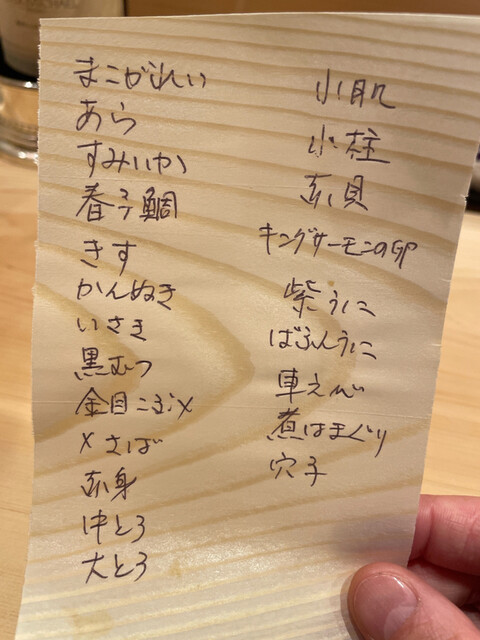 まこがれい
あら
すみいか
春子鯛
きす
かんぬき
いさき
黒むつ
金目こぶ〆
〆さば
赤身
中とろ
大とろ
小肌
小柱
赤貝
キングサーモンの卵
紫うに
ばふんうに
車えび
煮はまぐり
穴子